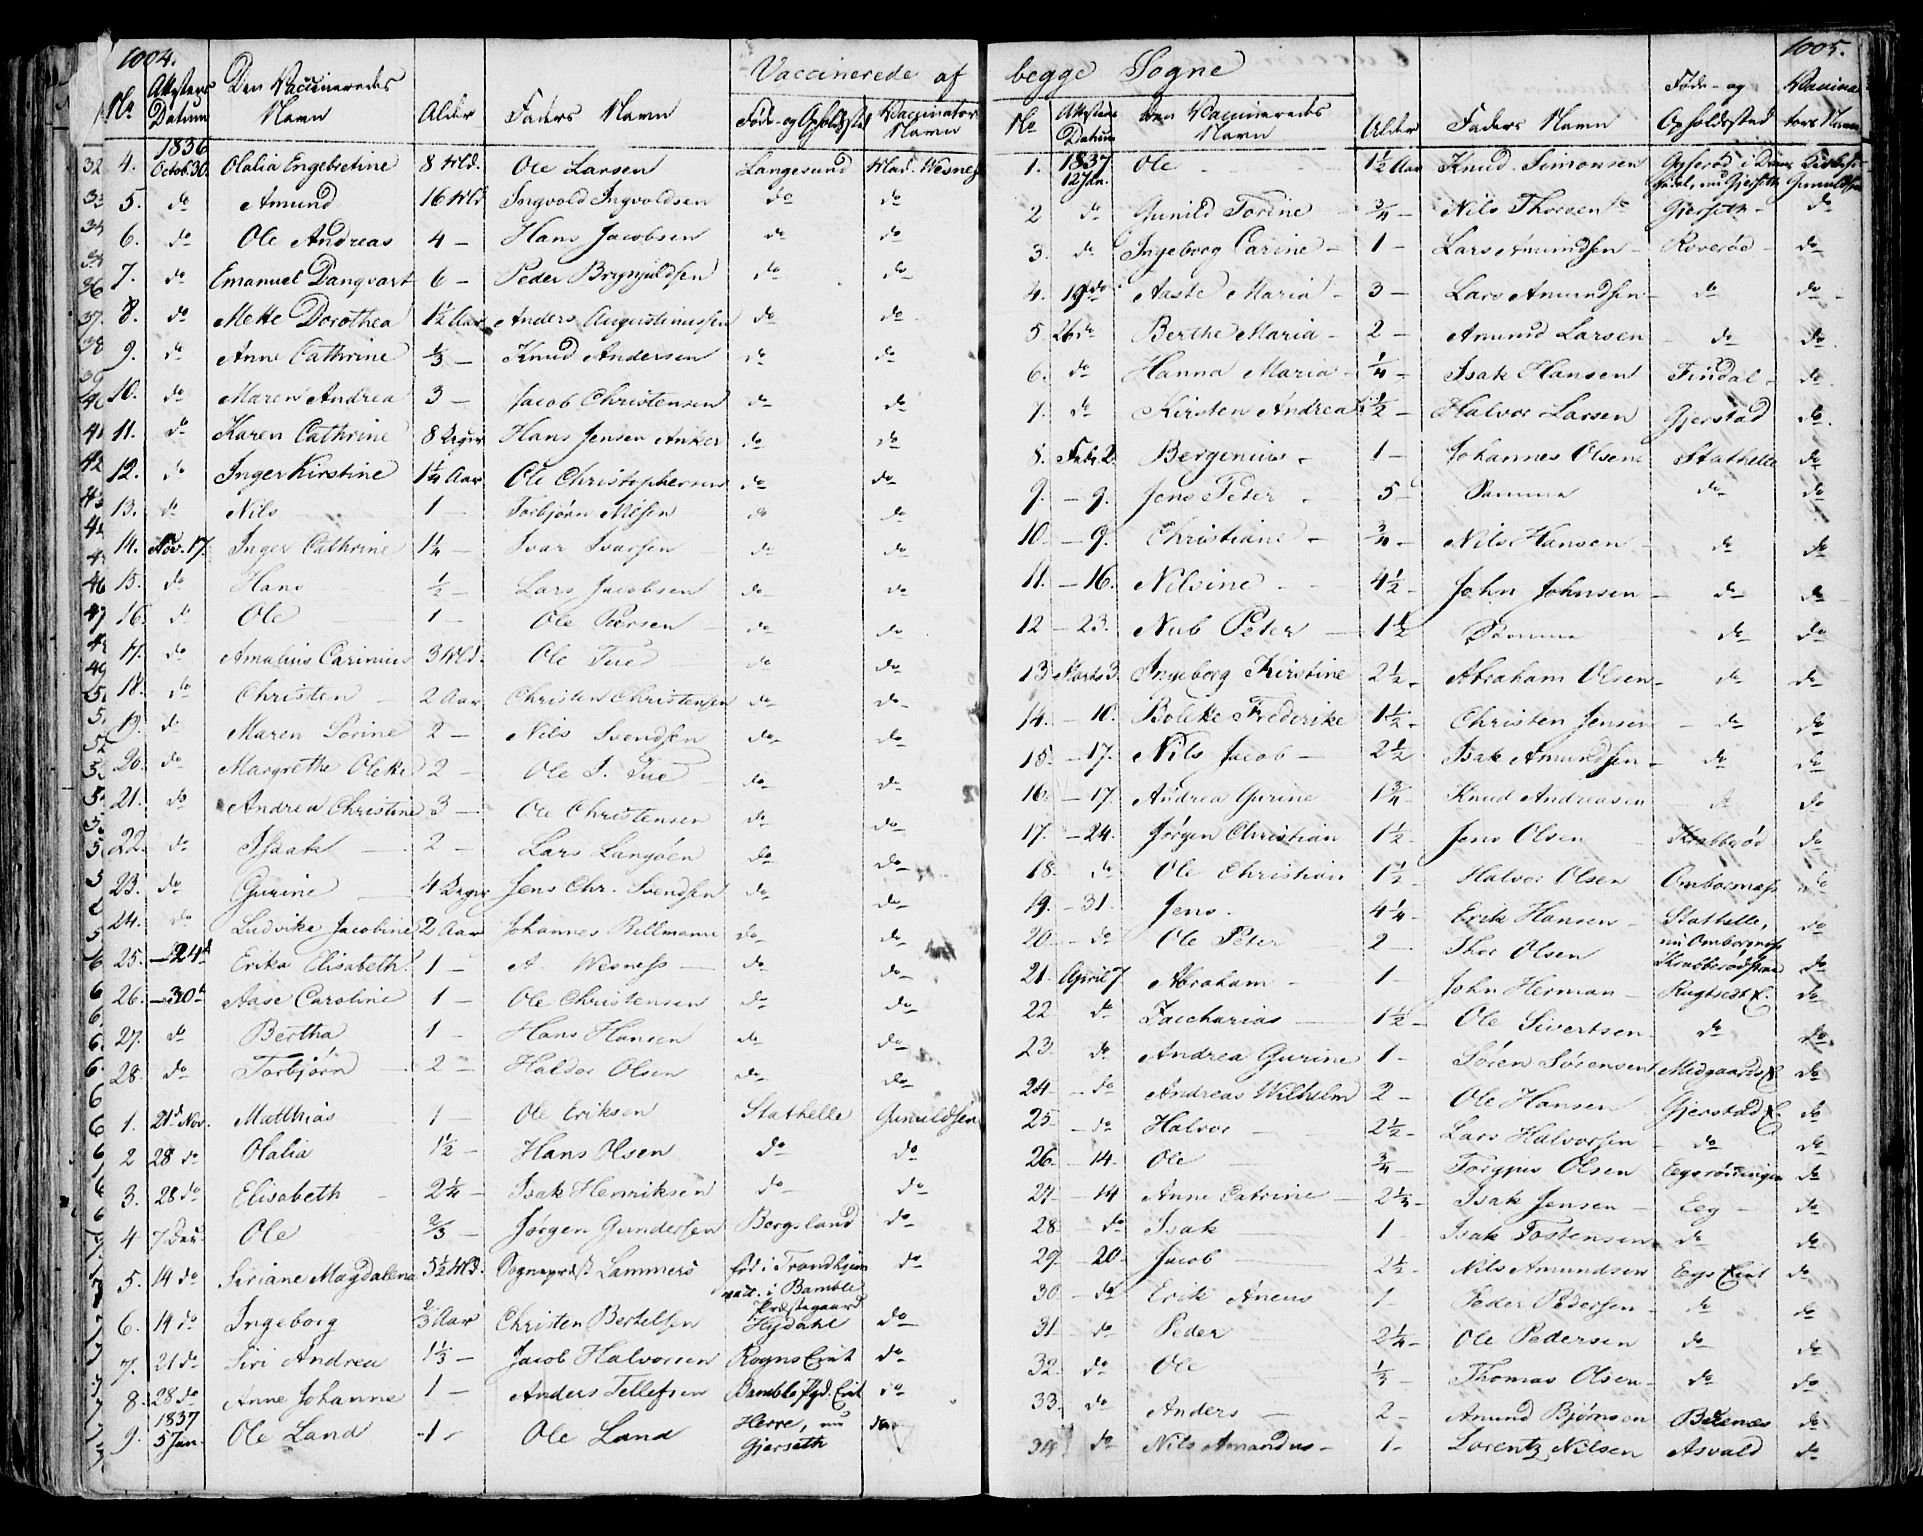 1004.
Vaccinerede af
No Attestens Datum Den Vaccineredes Navn Alder Faders Navn Føde- og Opholdssted Vaccinators Navn
1836
4. Octob. 30. Olalia Engebretine 8 Md. Ole Larsen Langesund Mad. Wesness
5. do Amund 16 Md. Ingvold Ingvoldsen do do
6. do Ole Andreas 4 — Hans Jacobsen do do
7. do Emanuel Danqvart 6 — Peder Brynjuldsen do do
8. do Mette Dorothea 1½ Aar Anders Augustinussen do do
9. do Anne Cathrine ⅓ — Knud Andersen do do
10. do Maren Andrea 3 — Jacob Christensen do do
11. do Karen Cathrine 8 Uger Hans Jensen Anker do do
12. do Inger Kirstine 1¼ Aar Ole Christophersen do do
13. do Nils 1 — Torbjørn Nilsen do do
14. Nov. 17 Inger Cathrine 1¼ — Ivar Ivarsen do do
15. do Hans ½ — Lars Jacobsen do do
16. do Ole 1 — Ole Persen do do
17. do Amalius Carinius 3 Md. Ole Tue do do
18. do Christen 2 Aar Christen Christensen do do
19. do Maren Sørine 2 — Nils Svendsen do do
20. do Margrethe Oleke 2 — Ole J. Tue do do
21. do Andrea Christine 3 — Ole Christensen do do
22. do Isaak 2 — Lars Langøen do do
23. do Gurine 4 Uger Jens Chr. Svendsen do do
24. do Ludvike Jacobine 2 Aar Johannes Billmann do do
25. — 24 Erika Elisabeth 1 — A. Wesness do do
26. — 30 Aase Caroline 1 — Ole Christensen do do
27. do Bertha 1 — Hans Hansen do do
28. do Torbjørn 2 — Halvor Olsen do do
1. 21 Nov. Matthias 1 — Ole Eriksen Stathelle Gunuldsen
2 28 do Olalia 1½ — Hans Olsen do do
3. 28 do Elisabeth 2¼ — Isak Henriksen do do
4 7 Dec. Ole ⅔ — Jørgen Gundersen Bergsland do
5. 14 do Siriane Magdalena 5½ Md. Sognepræst Lammers fød i Trondhjem vacc. i Bamble Præstegaard do
6. 14 do Ingeborg ⅔ Aar Christen Bertelsen Hydahl do
7. 21 do Siri Andrea 1⅓ — Jacob Halvorsen Rogns Eiet do
8. 28 do Anne Johanne 1 — Anders Tellefsen Bamble Pgd. Eiet do
1837
9. 5 Jan. Ole Land 1 — Ole Land Herre, nu Gjerseth do
1005.
begge Sogne
No Attestens Datum Den Vaccineredes Navn Alder Faders Navn Føde- og Opholdssted Vaccinators Navn
1837
1. 12 Jan. Ole 1½ Aar Knud Simonsen nu Gjerseth Gunuldsen
2 do Gunild Torine ¾ — Nils Thoresen Gjerseth do
3. do Ingeborg Carine 1 — Lars Amundsen Roverød do
4. 19 do Aaste Maria 3 — Lars Amundsen do do
5 26 do Berthe Maria 2 — Amund Larsen do do
6. do Hanna Maria ¼ — Isak Hansen Findal do
7. do Kirsten Andrea 1½ — Halvor Larsen Gjerstad do
8. Febr. 2. Bergenius 1 — Johannes Olsen Stathelle do
9. — 9. Jens Peter 5 — Samme do do
10. — 9. Christiane ¾ — Nils Hansen do do
11. — 16. Nilsine 4½ — John Johnsen do do
12 — 23. Nub Peter 1½ Samme do do
13 Marts 3. Ingeborg Kirstine 2½ Abraham Olsen do do
14. — 10. Boleke Frederike 1½ Christen Jensen do do
15. — 17. Nils Jacob 2½ Isak Amundsen do do
16. — 17. Andrea Gurine 1¾ Knud Andreasen do do
17. — 24. Jørgen Christian 1½ Jens Olsen Krabberød do
18. do Ole Christian 1½ Halvor Olsen Ombornæss do
19. — 31. Jens 4¼ Erik Hansen Stathelle, nu Ombornæss do
20. — do Ole Peter 2 Thor Olsen Krabberødstrand do
21. April 7 Abraham 1 John Herman Rugtvedt E. do
22 do Zacharias 1½ — Ole Sivertsen do do
23. do Andrea Gurine 1 — Søren Sørensen Midgaards E. do
24. do Andreas Wilhelm 2 — Ole Hansen Gjerstad E. do
25. do Halvor 2½ Lars Halvorsen do do
26. — 14. Ole ¾ — Torgjus Olsen Eegsrønningen do
27. — 14 Anne Catrine 2¼ Isak Jensen Eeg do
28. — do Isak 1 Isak Tostensen do do
29. — 20. Jacob 2½ Nils Amundsen Eegs Eiet do
30. — do Erik Aneus 1 — Peder Pedersen do do
31. — do Peder 2¼ — Ole Pedersen do do
32. do Ole ⅓ — Thomas Olsen do do
33. do Anders 2 — Amund Bjørnsen Bøenæs do
34 do Nils Amandus 1 — Lorentz Nilsen Asvald do